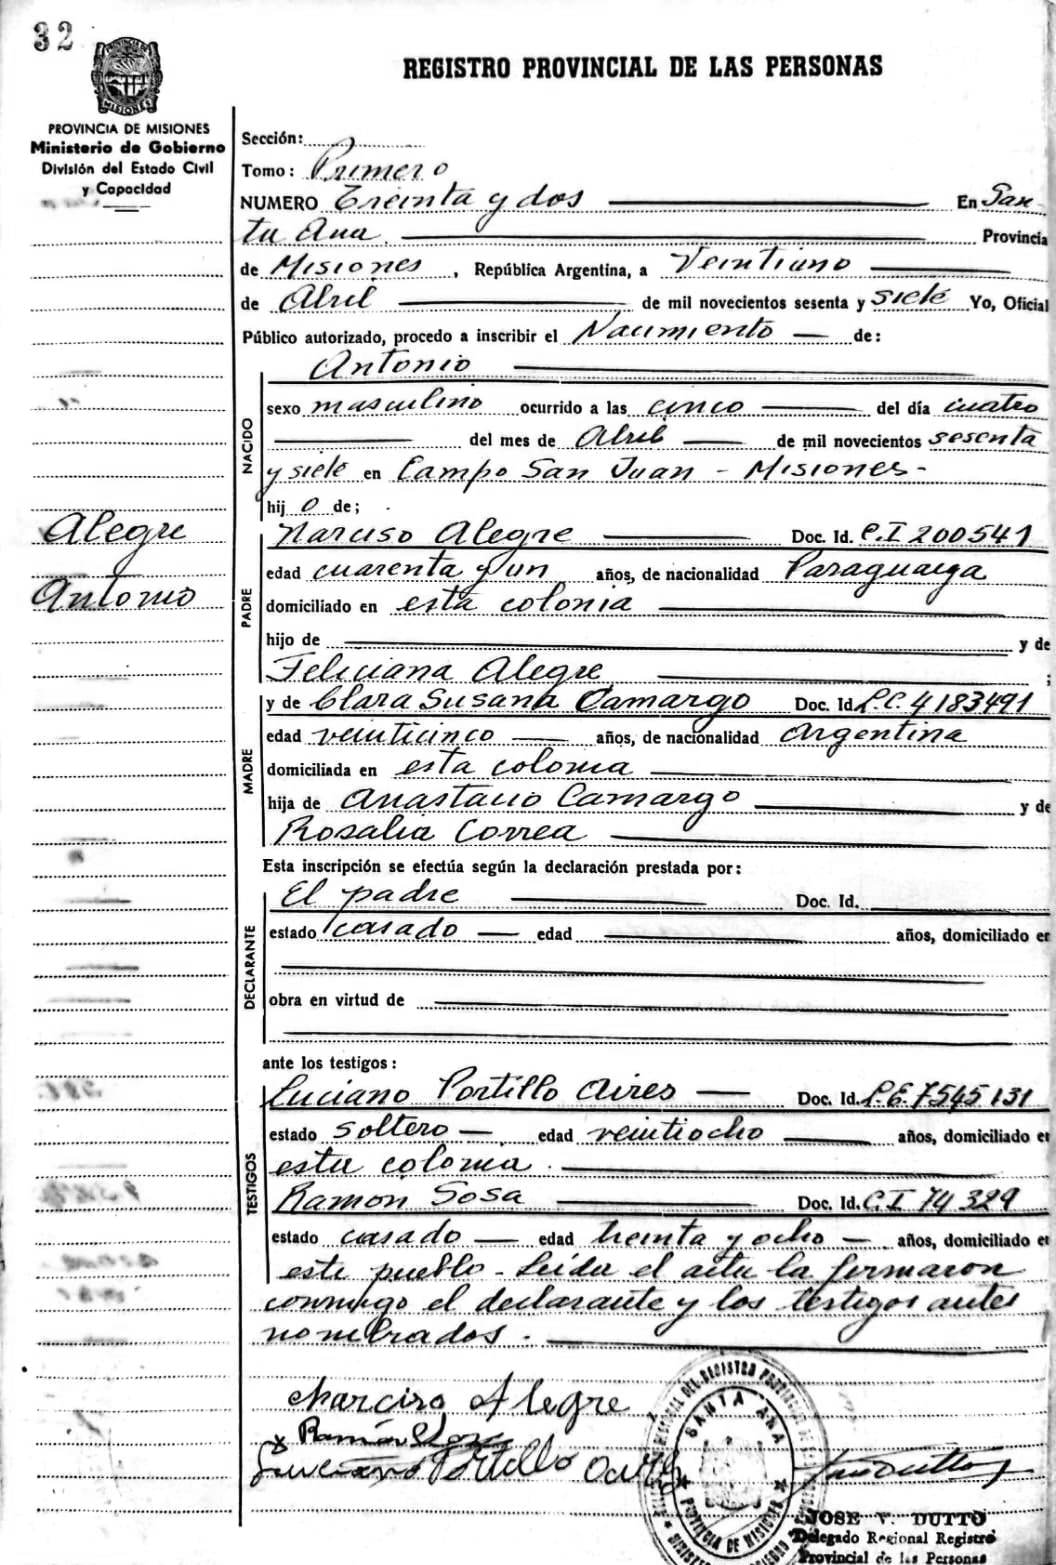 32
REGISTRO PROVINCIAL DE LAS PERSONAS
PROVINCIA DE MISIONES
Ministerio de Gobierno
División del Estado Civil
y Capacidad
Sección:
Tomo: Primero
NUMERO Treinta y dos En San
ta Ana. Provincia
de Misiones, República Argentina, a Veintiuno
de Abril de mil novecientos sesenta y siete Yo, Oficial
Público autorizado, procedo a inscribir el Nacimiento de:
NACIDO
Antonio
sexo masculino ocurrido a las cinco del día cuatro
del mes de Abril de mil novecientos sesenta
y siete en Campo San Juan - Misiones -
hij o de;
Alegre
Antonio
PADRE
Narciso Alegre Doc. Id. C.I 200541
edad cuarenta y un años, de nacionalidad Paraguaya
domiciliado en esta colonia
hijo de y de
Feliciana Alegre ;
MADRE
y de Clara Susana Camargo Doc. Id L.C. 4183491
edad veinticinco años, de nacionalidad Argentina
domiciliada en esta colonia
hija de Anastacio Camargo y de
Rosalia Correa
Esta inscripción se efectúa según la declaración prestada por:
DECLARANTE
El padre Doc. Id.
estado casado edad años, domiciliado en
obra en virtud de
ante los testigos:
TESTIGOS
Luciano Portillo Aires Doc. Id. L.E. 7545131
estado soltero edad veintiocho años, domiciliado en
esta colonia.
Ramon Sosa Doc. Id. C.I 74329
estado casado edad treinta y ocho años, domiciliado en
este pueblo - Leida el acta la firmaron
conmigo el declarante y los testigos antes
nombrados.
Narciso Alegre
x Ramón Sosa
Luciano Portillo
SANTA ANA
PROVINCIA DE MISIONES
JOSE V. DUTTO
Delegado Regional Registro
Provincial de las Personas